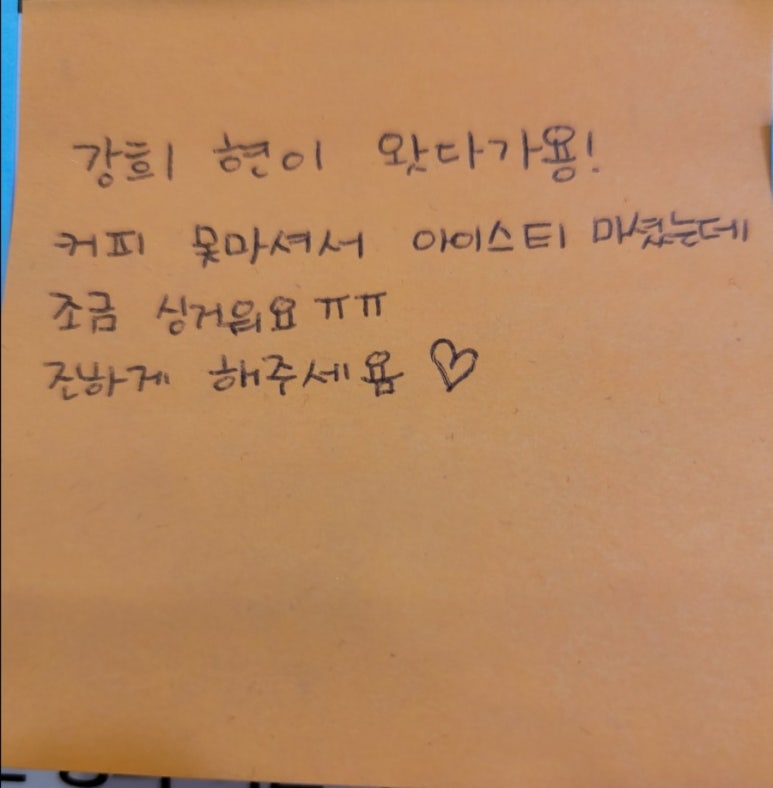 강희 현이 왓다가용!
커피 못마셔서 아이스티 마셨는데
조금 싱거워요 ㅠㅠ
진하게 해주세욤 ♡